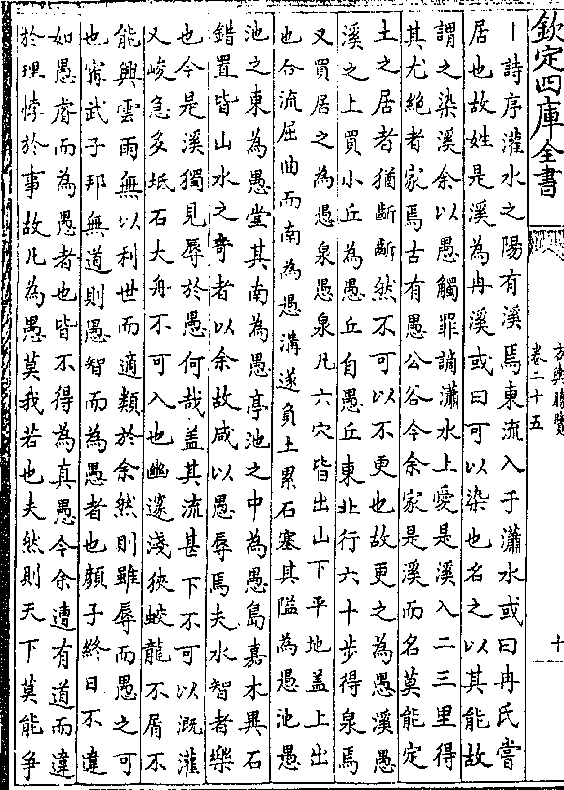 欽定四庫全書
方輿勝覽
卷二十五
十
丨詩序灌水之陽有溪焉東流入于瀟水或曰冉氏嘗
居也故姓是溪為冉溪或曰可以染也名之以其能故
謂之染溪余以愚觸罪謫瀟水上愛是溪入二三里得
其尤絶者家焉古有愚公谷今余家是溪而名莫能定
土之居者猶斷斷然不可以不更也故更之為愚溪愚
溪之上買小丘為愚丘自愚丘東北行六十步得泉焉
又買居之為愚泉愚泉凡六穴皆出山下平地盖上出
也合流屈曲而南為愚溝遂負土累石塞其隘為愚池愚
池之東為愚堂其南為愚亭池之中為愚島嘉木異石
錯置皆山水之竒者以余故咸以愚辱焉夫水智者樂
也今是溪獨見辱於愚何哉盖其流甚下不可以溉灌
又峻急多坻石大舟不可入也幽邃淺狹蛟龍不屑不
能興雲雨無以利世而適類於余然則雖辱而愚之可
也甯武子邦無道則愚智而為愚者也顔子終日不違
如愚睿而為愚者也皆不得為真愚今余遭有道而違
於理悖於事故凡為愚莫我若也夫然則天下莫能爭